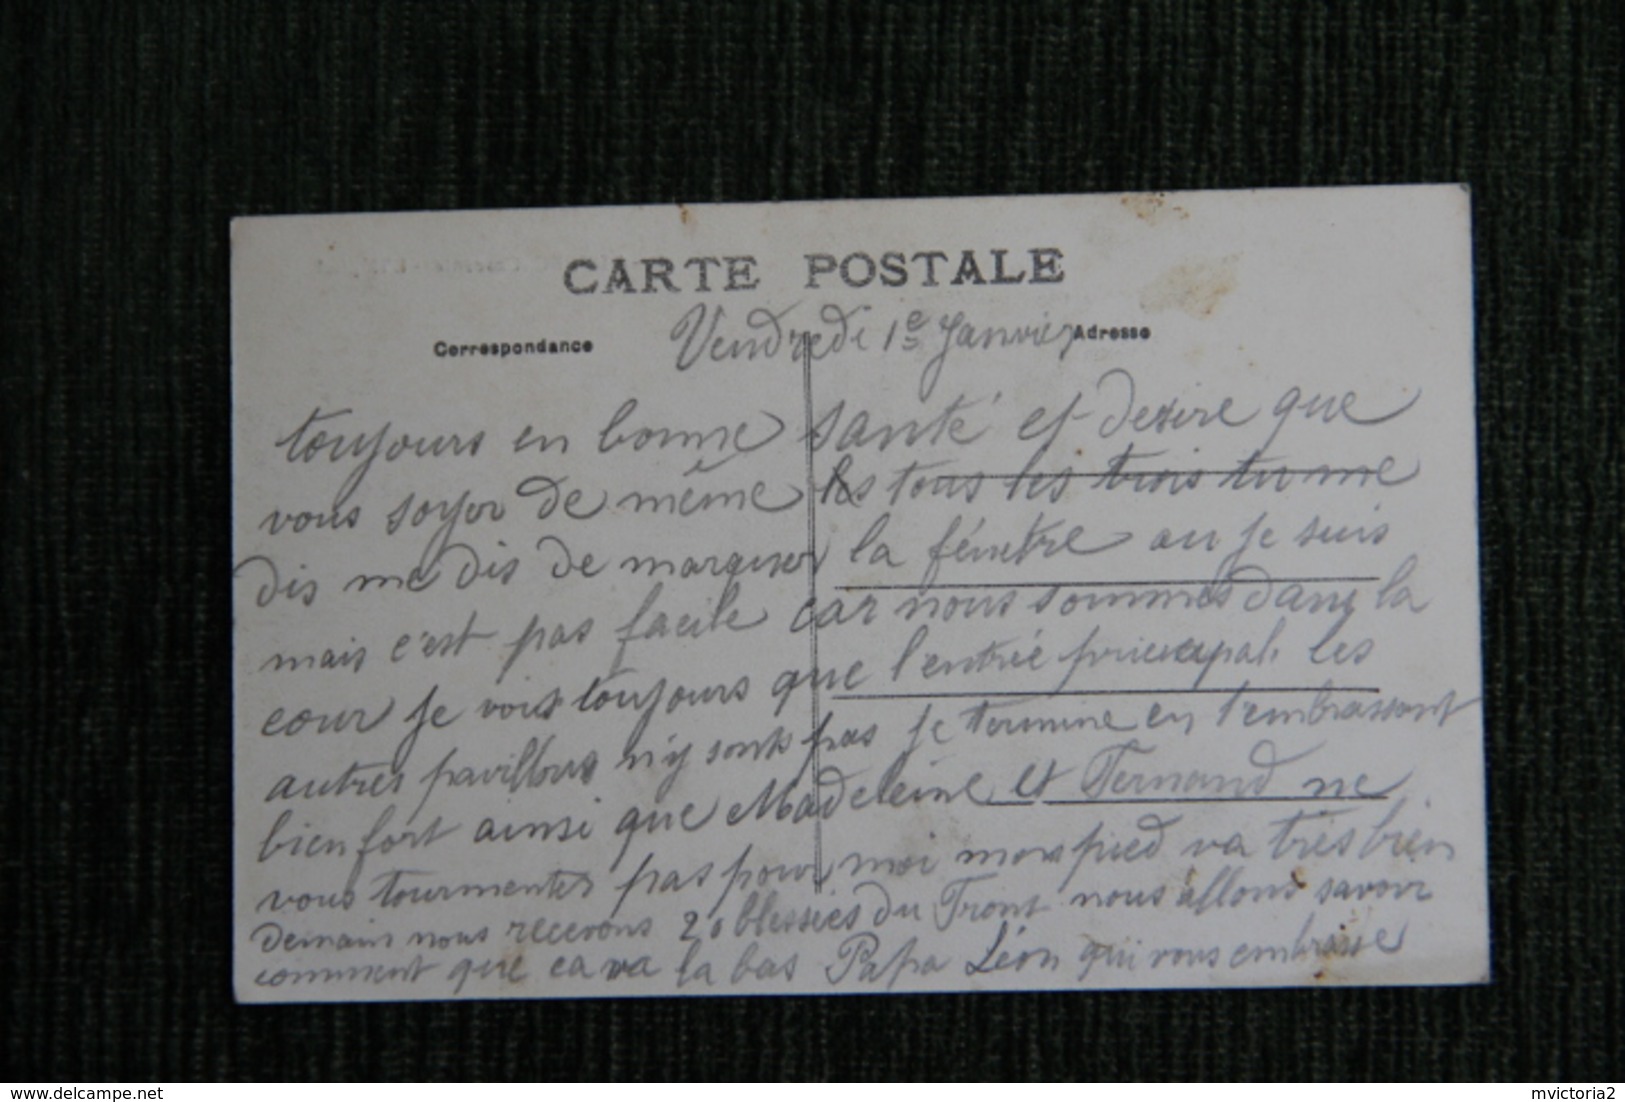 CARTE POSTALE
Correspondance
Adresse
Vendredi 1e Janvier
toujours en bonne santé et desire que
vous soyer de même les tous les trois tu me
dis me dis de marquer la fénêtre au je suis
mais c'est pas facile car nous sommes dans la
cour je vois toujours que l'entrée principal les
autres pavillons n'y sonts pas je termine en t'embrassant
bien fort ainsi que Madeleine et Fernand ne
vous tourmentés pas pour moi mon pied va très bien
demain nous recevons 20 blessiés du Front nous allons savoir
comment que ca va la bas Papa Léon qui vous embrasse
delcampe.net
mvictoria2